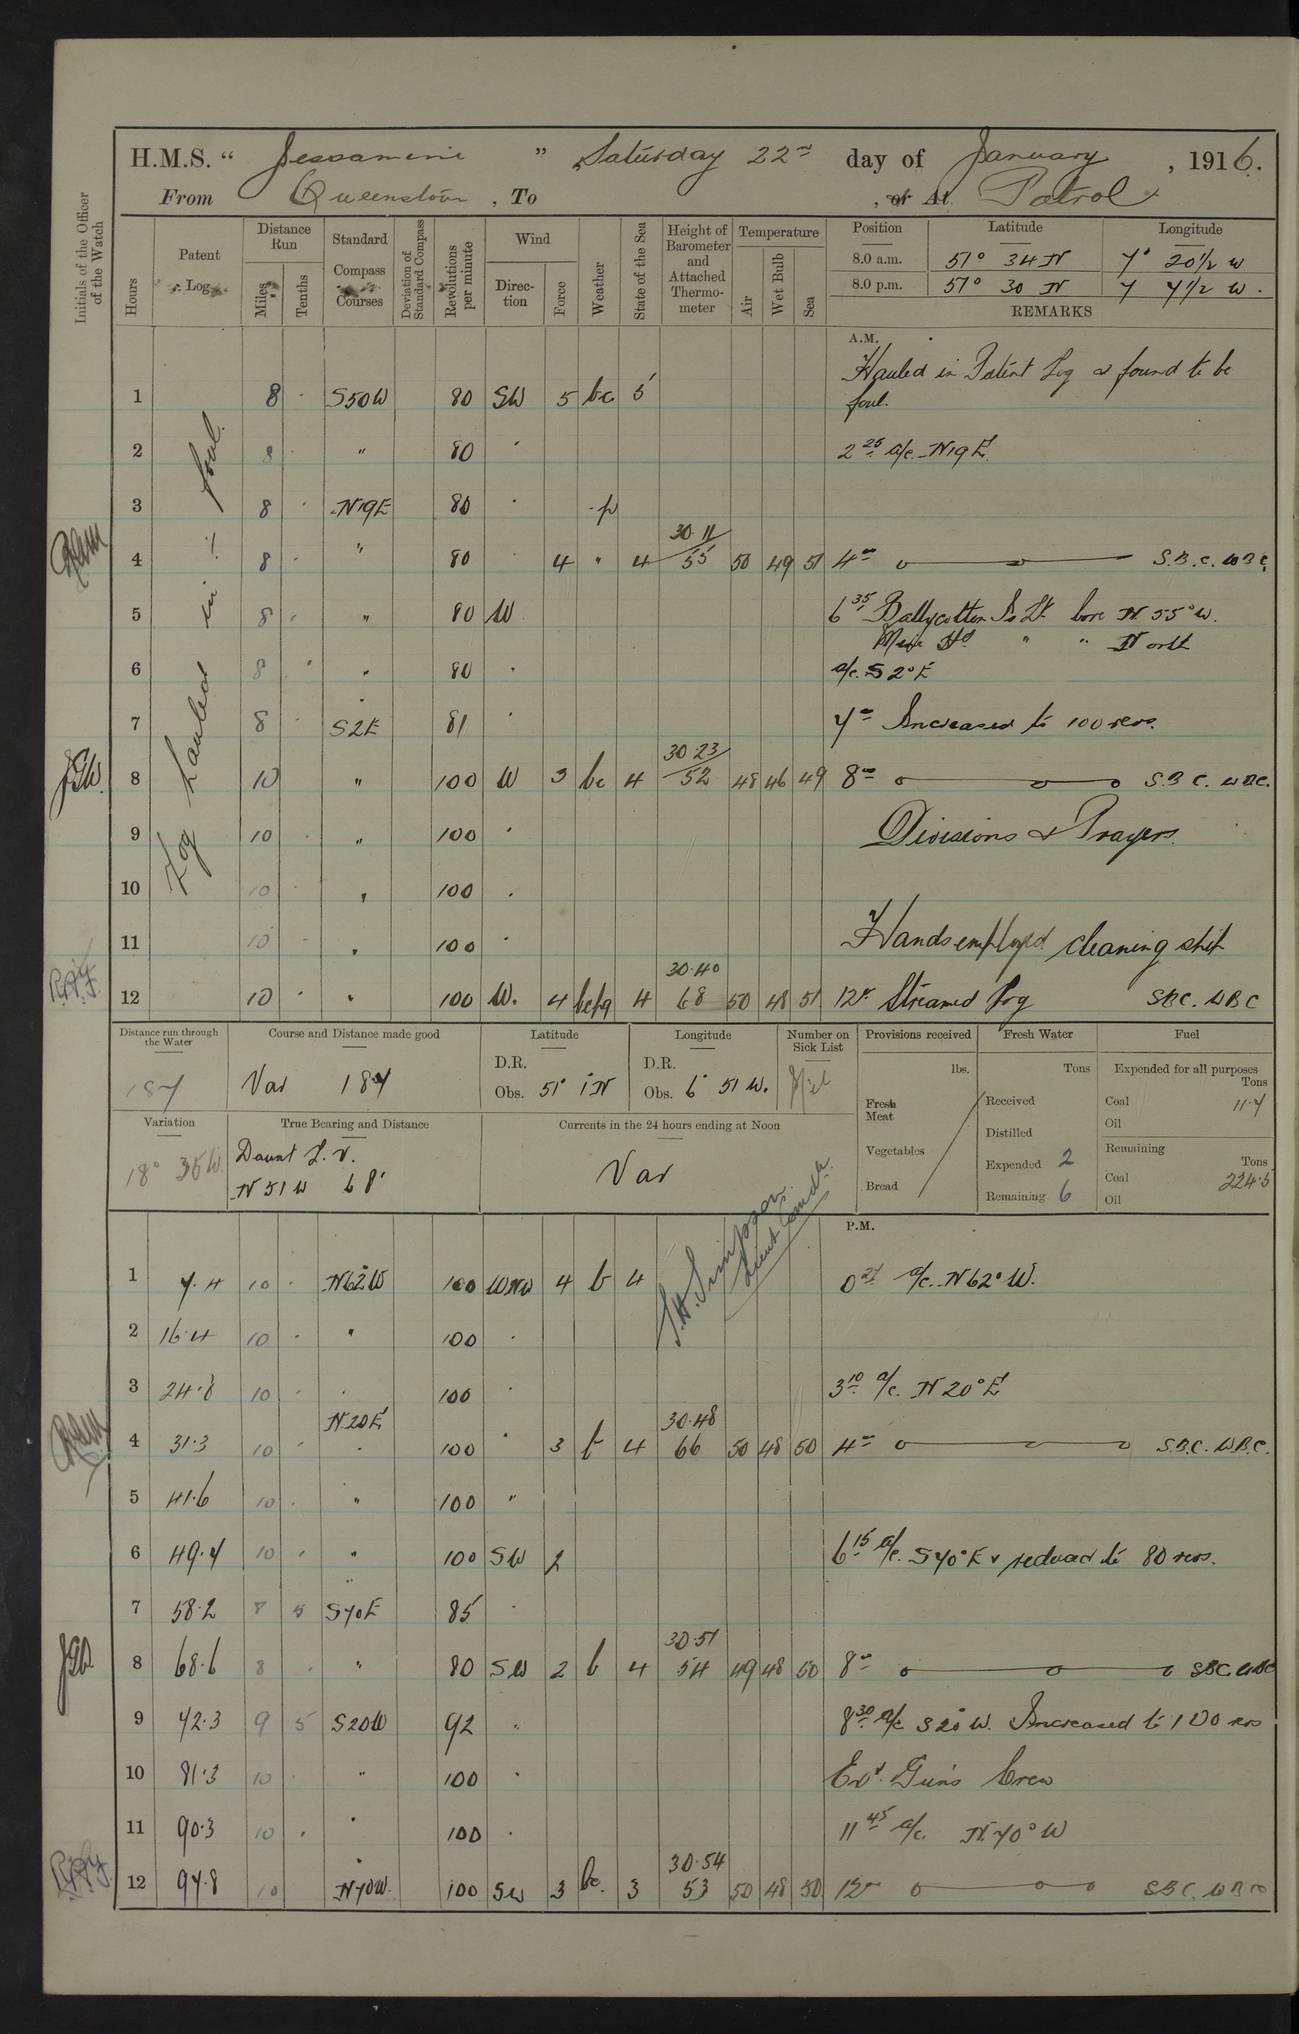 H.M.S. " Jessamine " Saturday 22nd day of January, 1916.
From Queenstown, To , or At Patrol
Initials of the Officer of the Watch
Hours Patent Log Distance Run Miles Tenths Standard Compass Courses Deviation of Standard Compass Revolutions per minute Wind Direction Force Weather State of the Sea Height of Barometer and Attached Thermometer Temperature Air Wet Bulb Sea
Position Latitude Longitude
8.0 a.m. 51° 34 N 7° 20½ W
8.0 p.m. 51° 30 N 7 7½ W.
REMARKS
A.M.
Log hauled in :- foul.
Hauled in Patent Log & found to be
1 8 · S50W 80 SW 5 bc 5 foul.
2 8 · " 80 · 2 25 a/c. N19E.
3 8 · N19E 80 · p
4 8 · " 80 · 4 " 4 30·11 55 50 49 51 4 S.B.C. W.B.C.
5 8 · " 80 W 6 35 Ballycotton Is Lt. bore N 55° W.
" " North
6 8 · " 80 · a/c. S 2° E
7 8 · S2E 81 · 7 Increased to 100 revs.
8 10 " 100 W 3 bc 4 30·23 52 48 46 49 8 S.B.C. W.B.C.
9 10 · " 100 · Divisions & Prayers.
10 10 · " 100 ·
11 10 · " 100 · Hands employed cleaning ship
12 10 · " 100 W. 4 bcpq 4 30·40 68 50 48 51 12 Streamed Log SBC. WBC
Distance run through the Water
187
Course and Distance made good
Var 187
Latitude
D.R.
Obs. 51° 1 N
Longitude
D.R.
Obs. 6° 51 W.
Number on Sick List
Nil
Provisions received
lbs.
Fresh Meat
Vegetables
Bread
Fresh Water
Tons
Received
Distilled
Expended 2
Remaining 6
Fuel
Expended for all purposes
Tons
Coal 11·7
Oil
Remaining
Tons
Coal 224·5
Oil
Variation
18° 35 W.
True Bearing and Distance
Daunt L. V.
N 51 W 68'
Currents in the 24 hours ending at Noon
Var
S.H. Simpson.
Lieut Comdr.
P.M.
1 7·4 10 · N62W 100 WNW 4 b 4 0 27 a/c. N 62° W.
2 16·4 10 · " 100 ·
3 24·8 10 · · 100 · 3 10 a/c. N 20° E
4 31·3 10 · N20E 100 " 3 b 4 30·48 66 50 48 50 4 S.B.C. W.B.C.
5 41·6 10 · " 100 "
6 49·7 10 · " 100 SW 2 6 15 a/c. S 70° E & reduced to 80 revs.
7 58·2 8 5 S70E 85 ·
8 68·6 8 · " 80 SW 2 b 4 30·51 54 49 48 50 8 SBC. WBC
9 72·3 9 5 S20W 92 " 8 30 a/c S 20° W. Increased to 100 revs
10 81·3 10 · " 100 · Exd. Guns Crew
11 90·3 10 · " 100 · 11 45 a/c. N 70° W
12 97·8 10 N70W. 100 SW 3 bc. 3 30·54 53 50 48 50 12 SBC. WBC